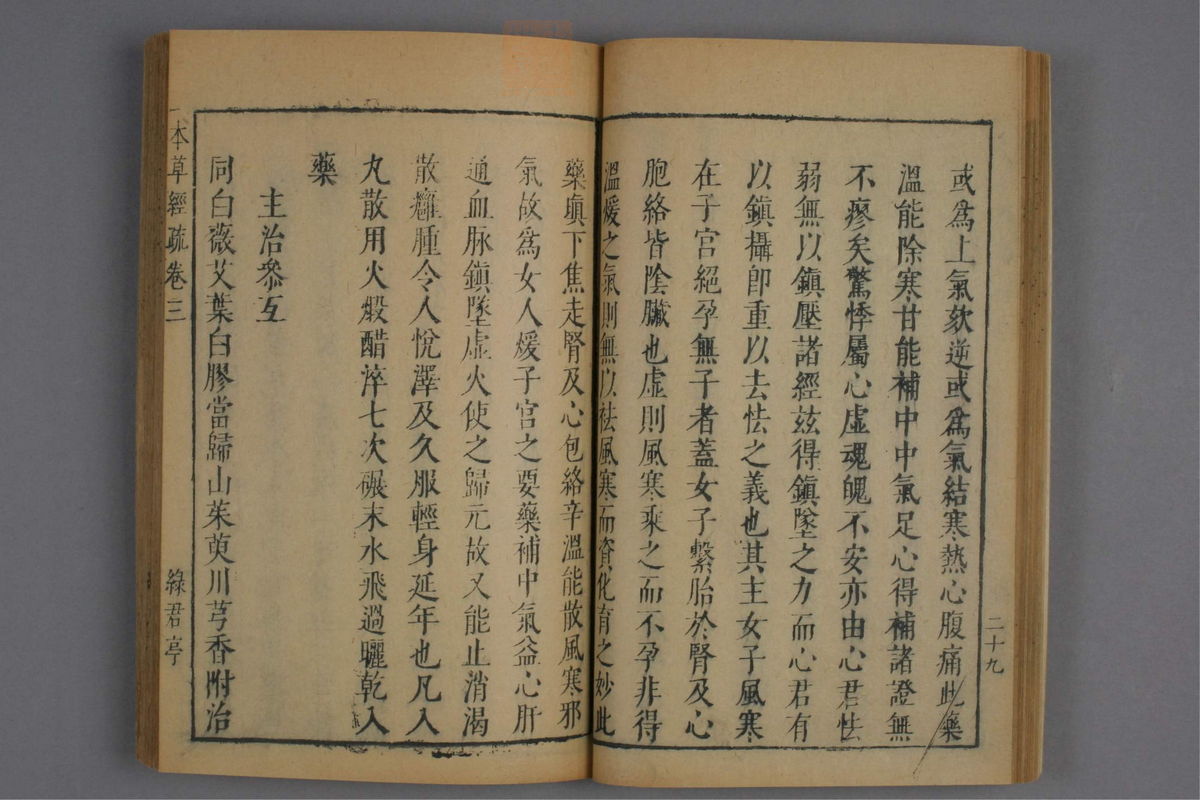 二十九
或爲上氣欬逆或爲氣結寒熱心腹痛此藥
溫能除寒甘能補中中氣足心得補諸證無
不瘳矣驚悸屬心虛魂魄不安亦由心君怯
弱無以鎭壓諸經茲得鎭墜之力而心君有
以鎭攝卽重以去怯之義也其主女子風寒
在子宮絕孕無子者蓋女子繫胎於腎及心
胞絡皆陰臟也虛則風寒乘之而不孕非得
溫煖之氣則無以祛風寒而資化育之妙此
藥塡下焦走腎及心包絡辛溫能散風寒邪
氣故爲女人煖子宮之要藥補中氣益心肝
通血脉鎭墜虛火使之歸元故又能止消渴
散癰腫令人悅澤及久服輕身延年也凡入
丸散用火煅醋淬七次碾末水飛過曬乾入
藥
主治參互
同白薇艾葉白膠當歸山茱萸川芎香附治
本草經疏卷三
綠君亭